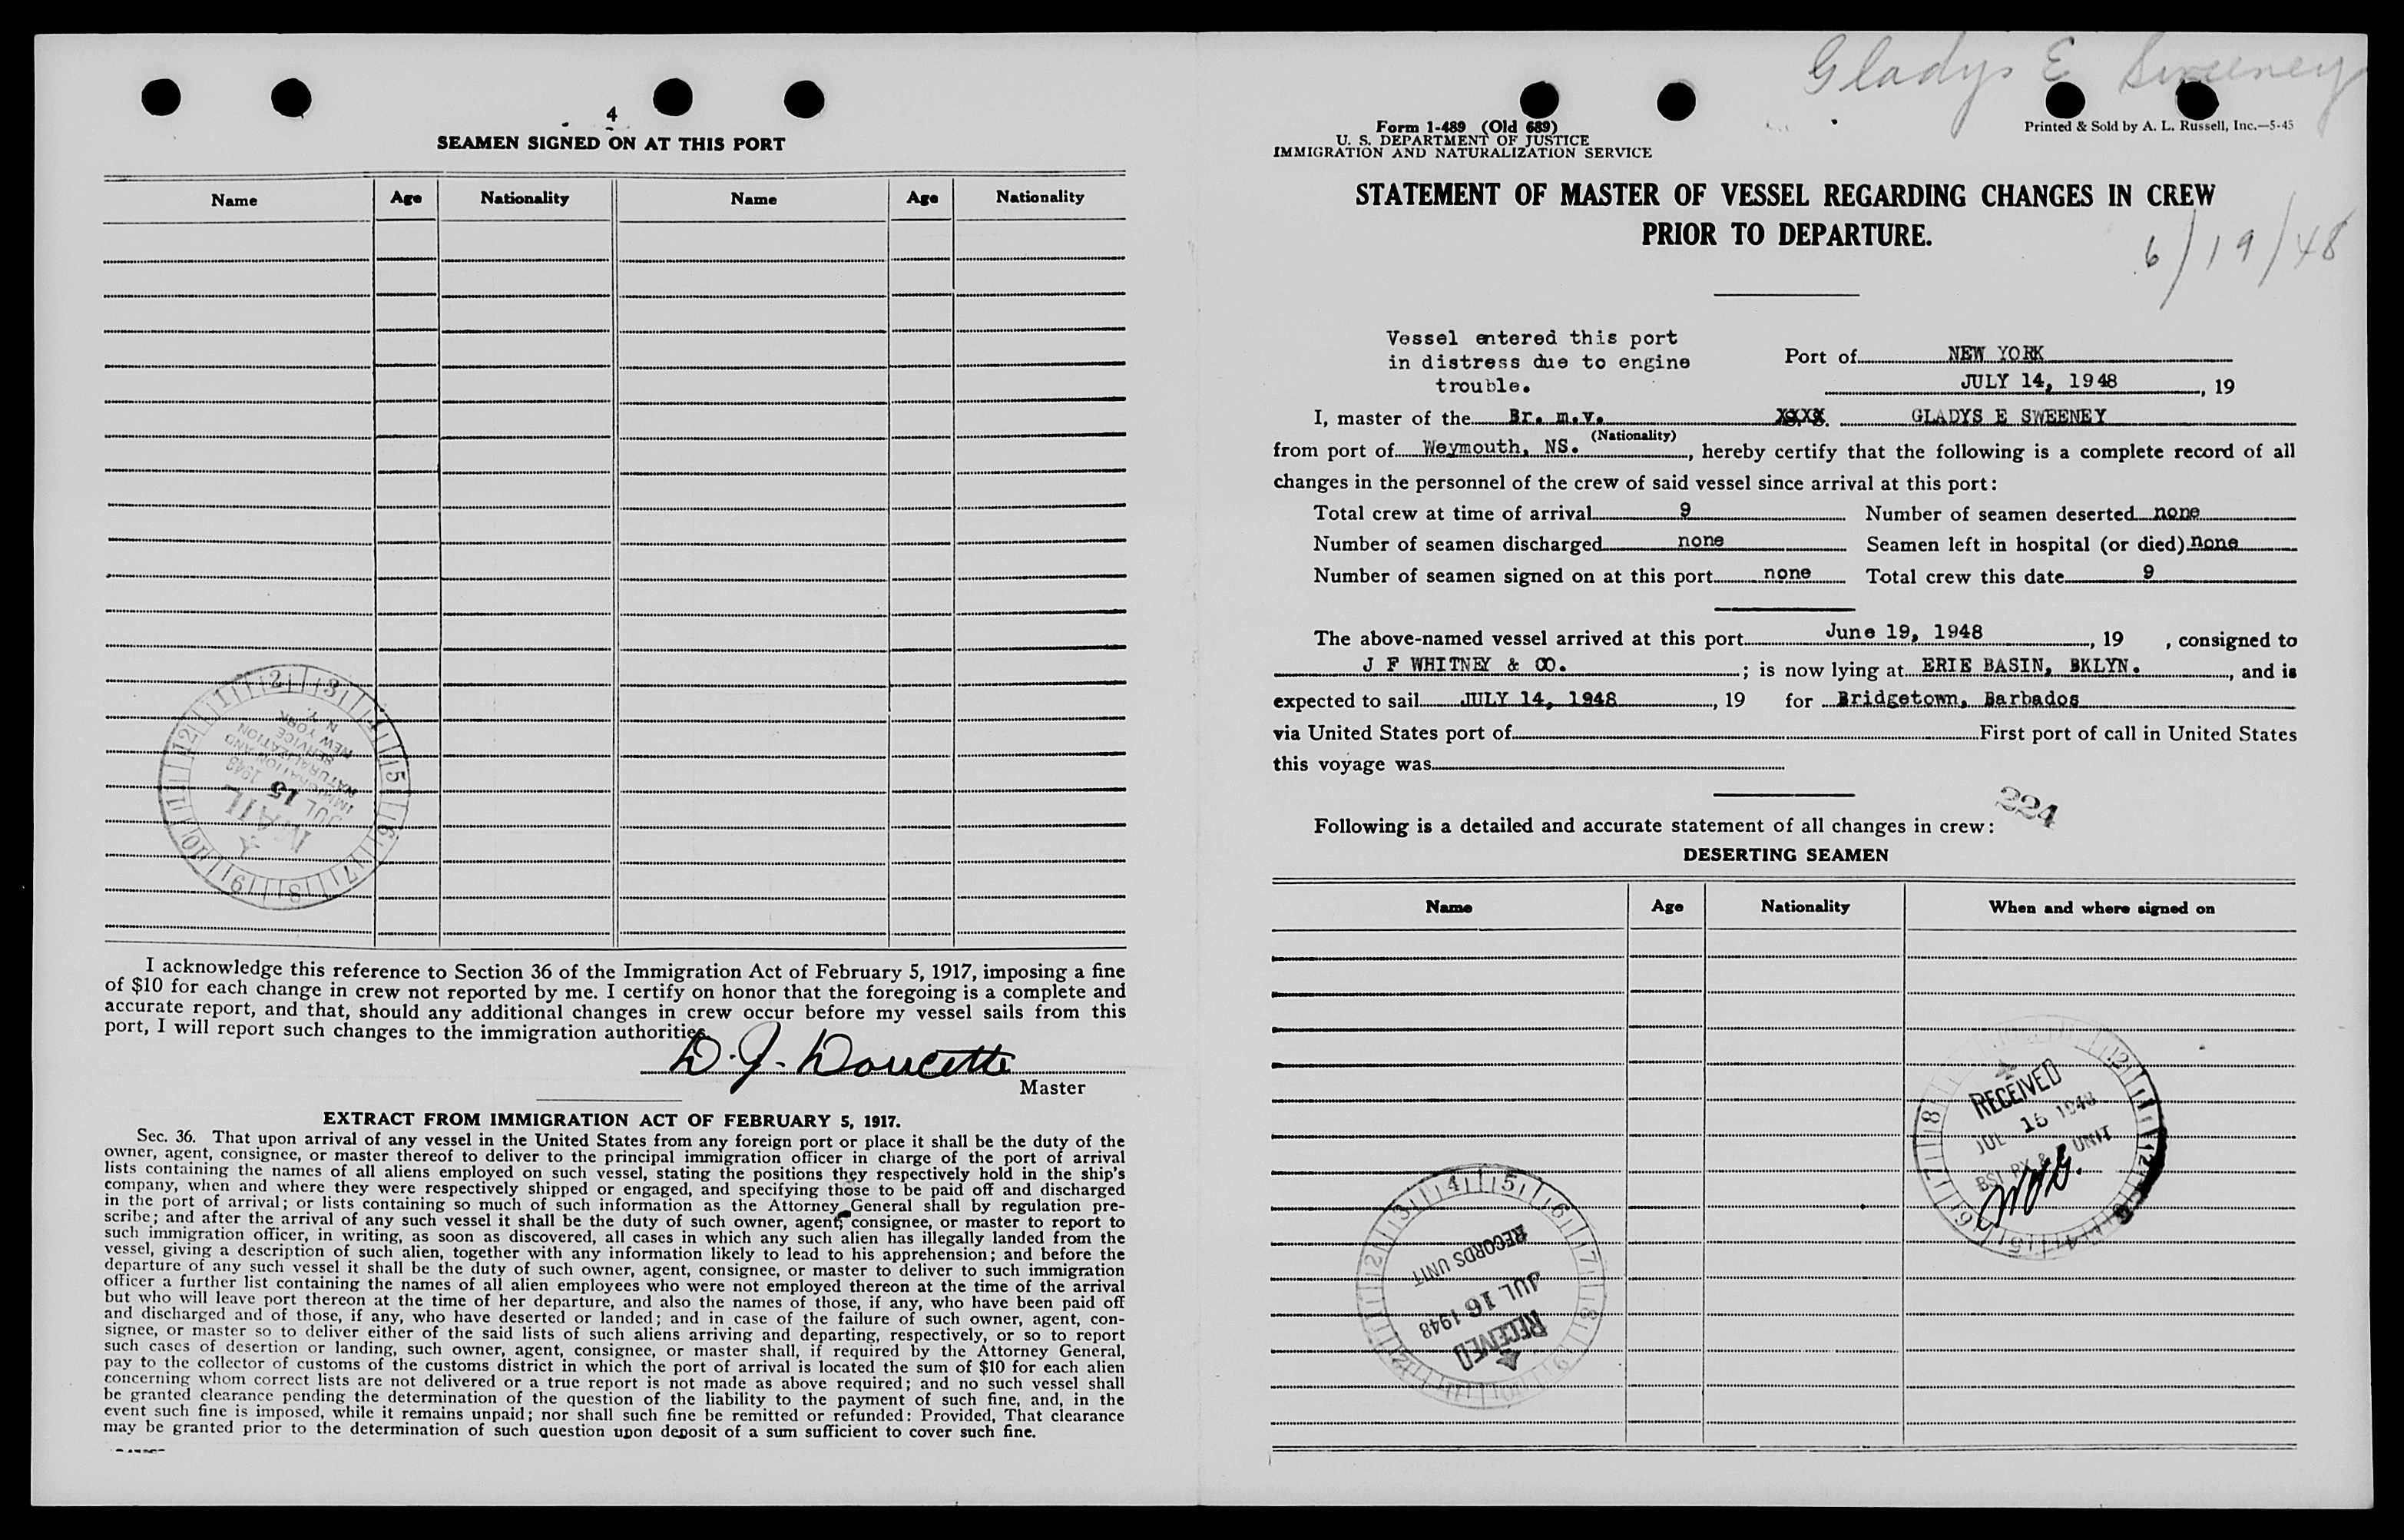 4
SEAMEN SIGNED ON AT THIS PORT
Name Age Nationality Name Age Nationality
2 3 4 5 6 7 8 9 10 11 12 1
MAIL
JUL 15 1948
IMMIGRATION AND
NATURALIZATION
SERVICE
NEW YORK
N. Y.
I acknowledge this reference to Section 36 of the Immigration Act of February 5, 1917, imposing a fine
of $10 for each change in crew not reported by me. I certify on honor that the foregoing is a complete and
accurate report, and that, should any additional changes in crew occur before my vessel sails from this
port, I will report such changes to the immigration authorities.
D. J. Doucette
Master
EXTRACT FROM IMMIGRATION ACT OF FEBRUARY 5, 1917.
Sec. 36. That upon arrival of any vessel in the United States from any foreign port or place it shall be the duty of the
owner, agent, consignee, or master thereof to deliver to the principal immigration officer in charge of the port of arrival
lists containing the names of all aliens employed on such vessel, stating the positions they respectively hold in the ship's
company, when and where they were respectively shipped or engaged, and specifying those to be paid off and discharged
in the port of arrival; or lists containing so much of such information as the Attorney General shall by regulation pre-
scribe; and after the arrival of any such vessel it shall be the duty of such owner, agent, consignee, or master to report to
such immigration officer, in writing, as soon as discovered, all cases in which any such alien has illegally landed from the
vessel, giving a description of such alien, together with any information likely to lead to his apprehension; and before the
departure of any such vessel it shall be the duty of such owner, agent, consignee, or master to deliver to such immigration
officer a further list containing the names of all alien employees who were not employed thereon at the time of the arrival
but who will leave port thereon at the time of her departure, and also the names of those, if any, who have been paid off
and discharged and of those, if any, who have deserted or landed; and in case of the failure of such owner, agent, con-
signee, or master so to deliver either of the said lists of such aliens arriving and departing, respectively, or so to report
such cases of desertion or landing, such owner, agent, consignee, or master shall, if required by the Attorney General,
pay to the collector of customs of the customs district in which the port of arrival is located the sum of $10 for each alien
concerning whom correct lists are not delivered or a true report is not made as above required; and no such vessel shall
be granted clearance pending the determination of the question of the liability to the payment of such fine, and, in the
event such fine is imposed, while it remains unpaid; nor shall such fine be remitted or refunded: Provided, That clearance
may be granted prior to the determination of such question upon deposit of a sum sufficient to cover such fine.
Gladys E Sweeney
Form 1-489 (Old 689)
U. S. DEPARTMENT OF JUSTICE
IMMIGRATION AND NATURALIZATION SERVICE
Printed & Sold by A. L. Russell, Inc.—5-45
STATEMENT OF MASTER OF VESSEL REGARDING CHANGES IN CREW
PRIOR TO DEPARTURE.
6/19/48
Vessel entered this port
in distress due to engine
trouble.
Port of NEW YORK
JULY 14, 1948, 19
I, master of the Br. m.v. XXXX GLADYS E SWEENEY
(Nationality)
from port of Weymouth, NS., hereby certify that the following is a complete record of all
changes in the personnel of the crew of said vessel since arrival at this port:
Total crew at time of arrival 9 Number of seamen deserted none
Number of seamen discharged none Seamen left in hospital (or died) none
Number of seamen signed on at this port none Total crew this date 9
The above-named vessel arrived at this port June 19, 1948, 19 , consigned to
J F WHITNEY & CO. ; is now lying at ERIE BASIN, BKLYN. , and is
expected to sail JULY 14, 1948, 19 for Bridgetown, Barbados
via United States port of First port of call in United States
this voyage was
224
Following is a detailed and accurate statement of all changes in crew:
DESERTING SEAMEN
Name Age Nationality When and where signed on
RECEIVED
JUL 15 1948
UNIT
RECEIVED
JUL 16 1948
RECORDS UNIT